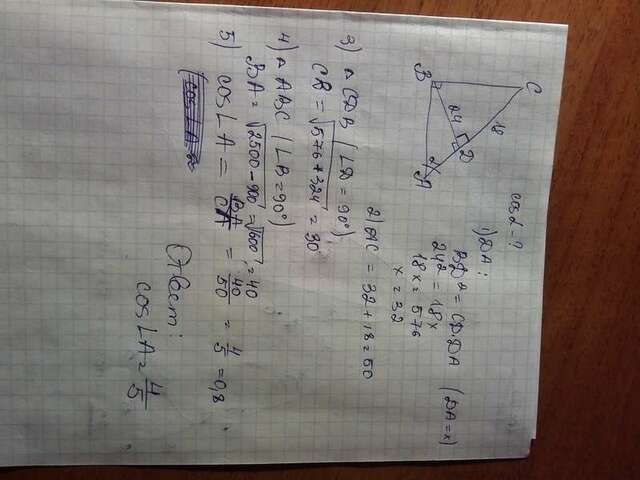 cos α = ?
C
B
A
D
24
18
α
1) DA:
BD² = CD·DA (DA = x)
24² = 18x
18x = 576
x = 32
2) AC = 32 + 18 = 50
3) △ CDB (∠D = 90°)
CB = √576 + 324 = 30
4) △ ABC (∠B = 90°)
BA = √2500 - 900 = √1600 = 40
5) cos ∠A = BA/CA = 40/50 = 4/5 = 0,8
Ответ:
cos ∠A = 4/5